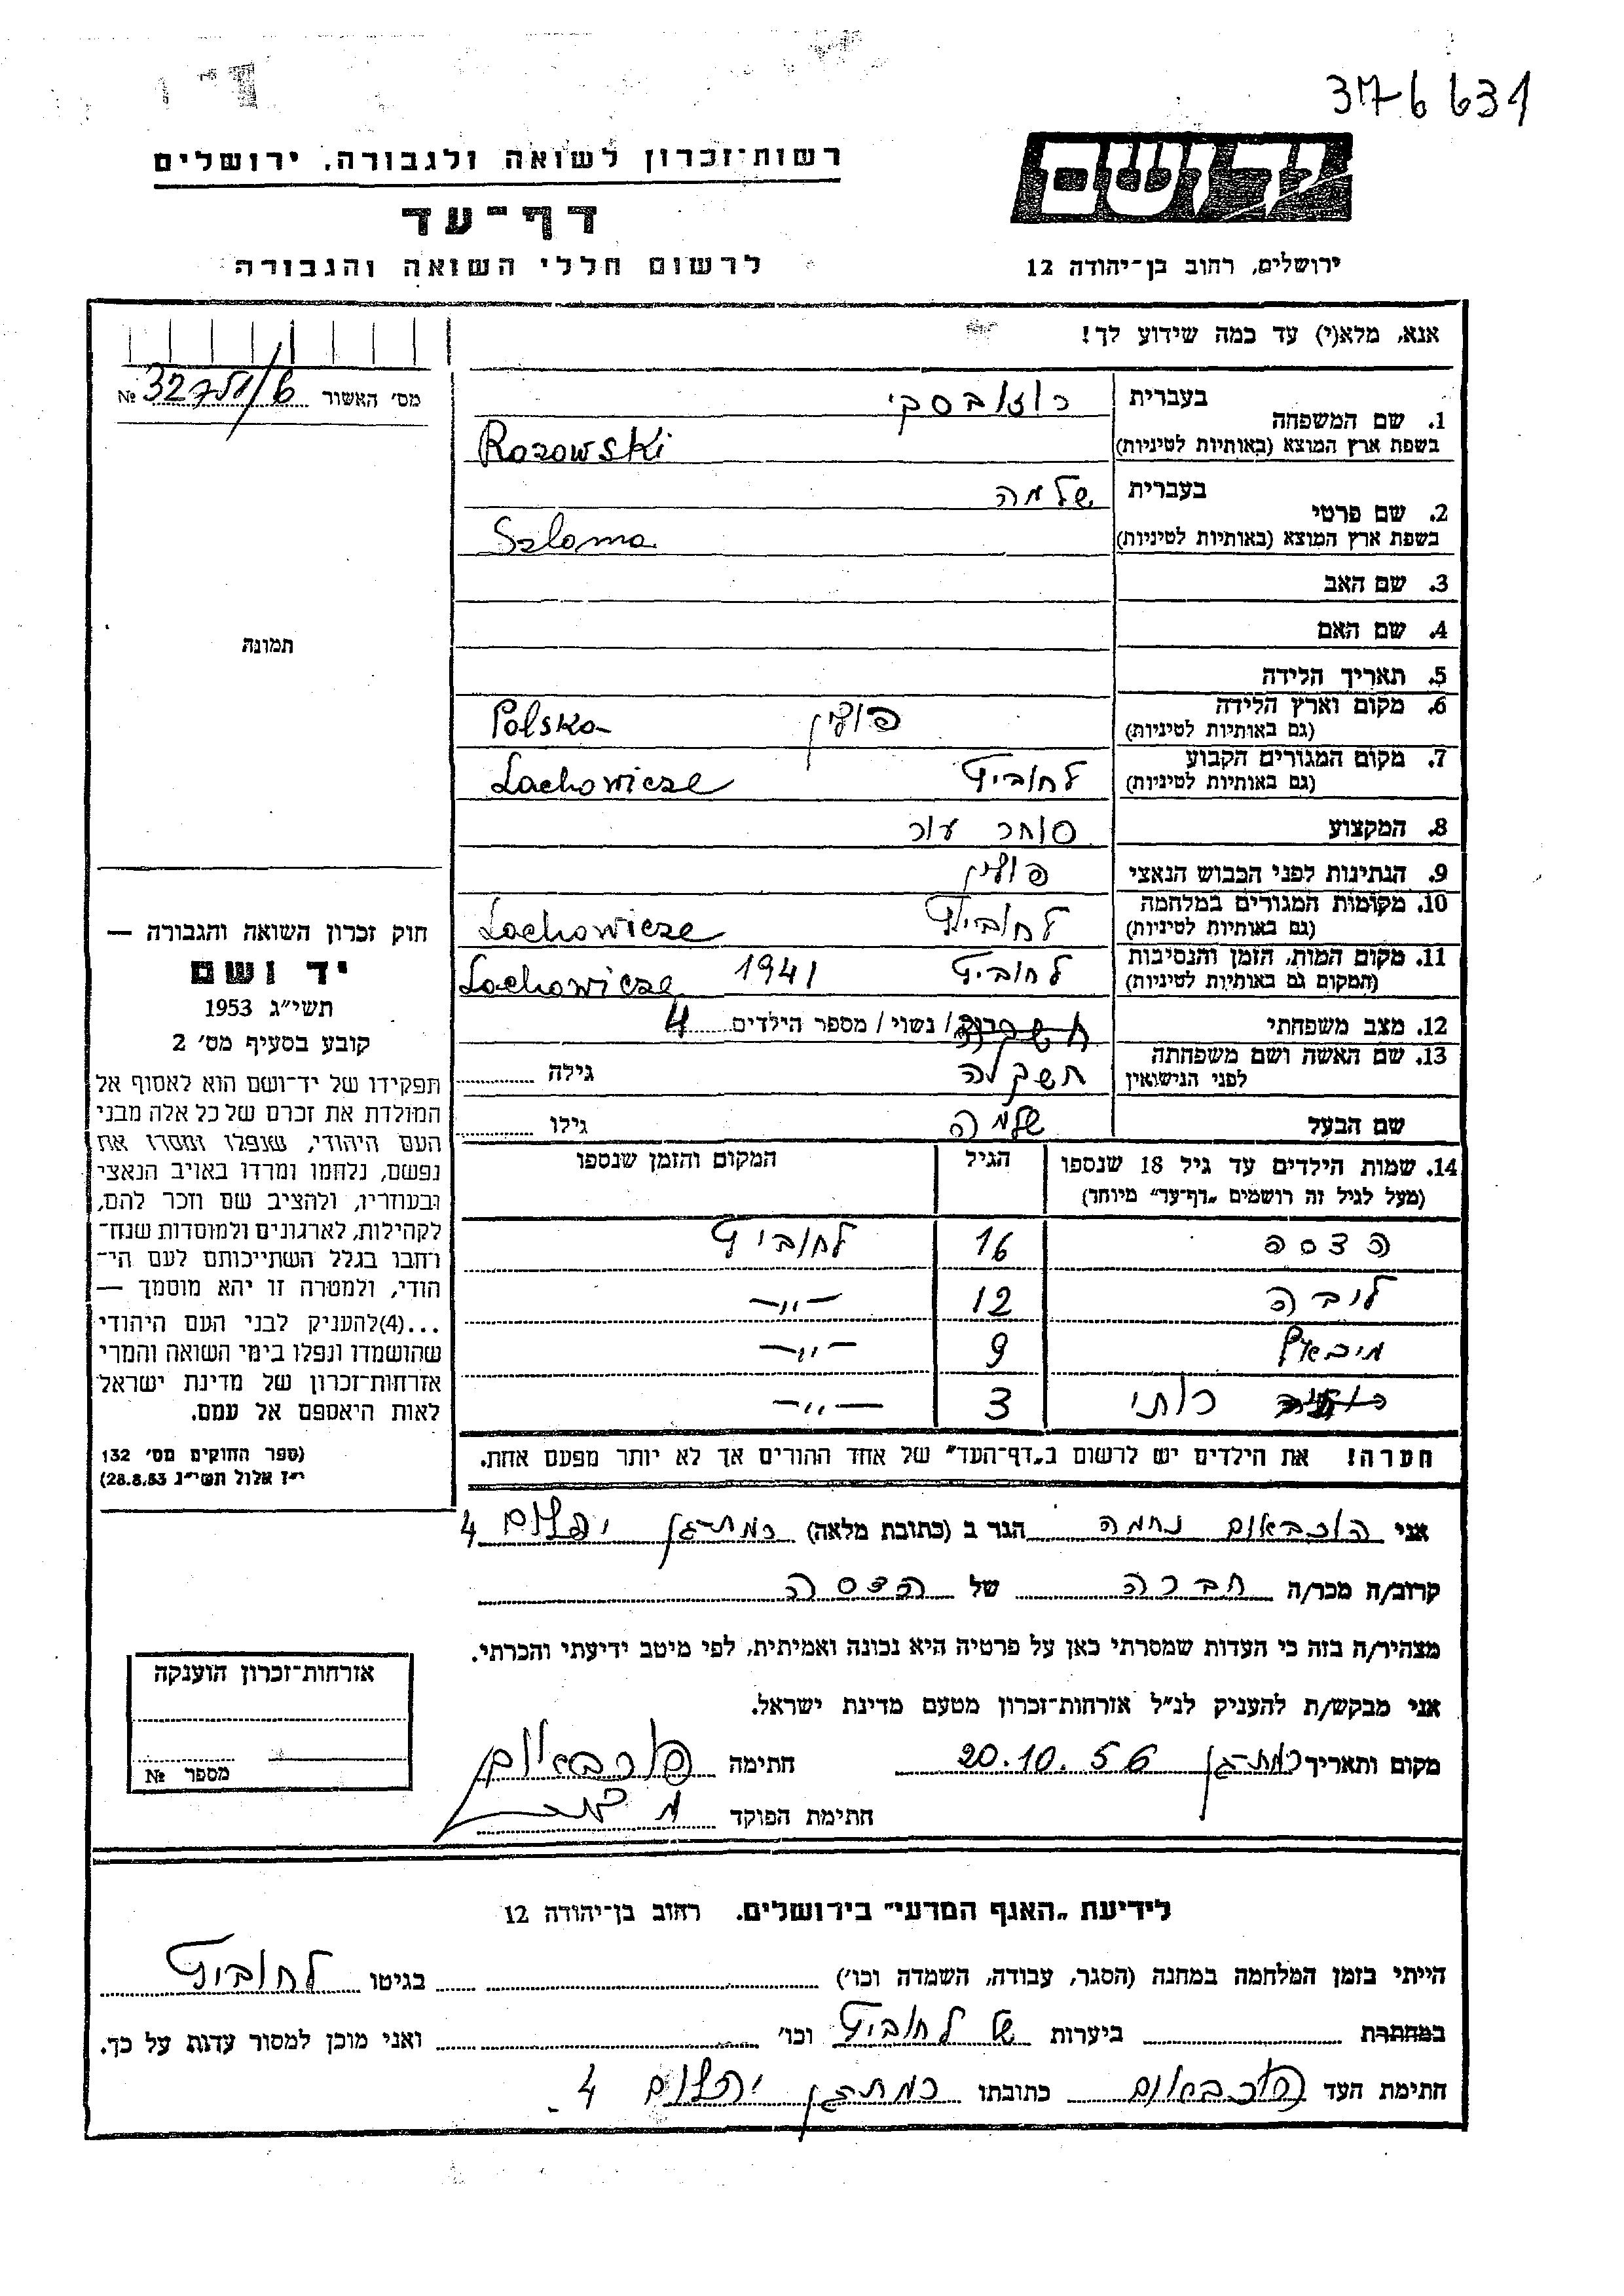 3176631
רשות־זכרון לשואה ולגבורה. ירושלים
דף־עד
לרשום חללי השואה והגבורה
יד ושם
ירושלים, רחוב בן־יהודה 12
אנא, מלא(י) עד כמה שידוע לך!
מס׳ האשור № 
1. שם המשפחה
בעברית רוזובסקי
בשפת ארץ המוצא (באותיות לטיניות) Rozowski
2. שם פרטי
בעברית שלמה
בשפת ארץ המוצא (באותיות לטיניות) Szloma
3. שם האב
4. שם האם
5. תאריך הלידה
6. מקום וארץ הלידה
(גם באותיות לטיניות) פולין Polska
7. מקום המגורים הקבוע
(גם באותיות לטיניות) לחוביץ Lachowicze
8. המקצוע סוחר עור
9. הנתינות לפני הכבוש הנאצי פולין
10. מקומות המגורים במלחמה
(גם באותיות לטיניות) לחוביץ Lachowicze
11. מקום המות, הזמן והנסיבות
(המקום גם באותיות לטיניות) לחוביץ 1941 Lachowicze
12. מצב משפחתי / נשוי / מספר הילדים 4
13. שם האשה ושם משפחתה
לפני הנישואין גילה
שם הבעל שלמה גילו
14. שמות הילדים עד גיל 18 שנספו הגיל המקום והזמן שנספו
(מעל לגיל זה רושמים „דף־עד״ מיוחד)
הדסה 16 לחוביץ
ליבה 12 —״—
מיכאל 9 —״—
רותי 3 —״—
תמונה
חוק זכרון השואה והגבורה —
יד ושם
תשי״ג 1953
קובע בסעיף מס׳ 2
תפקידו של יד־ושם הוא לאסוף אל
המולדת את זכרם של כל אלה מבני
העם היהודי, שנפלו ומסרו את
נפשם, נלחמו ומרדו באויב הנאצי
ובעוזריו, ולהציב שם וזכר להם,
לקהילות, לארגונים ולמוסדות שנח־
רחבו בגלל השתייכותם לעם הי־
הודי, ולמטרה זו יהא מוסמך —
...(4)להעניק לבני העם היהודי
שהושמדו ונפלו בימי השואה והמרי
אזרחות־זכרון של מדינת ישראל
לאות היאספם אל עמם.
(ספר החוקים מס׳ 132
י״ז אלול תשי״ג 28.8.53)
הערה! את הילדים יש לרשום ב„דף־העד״ של אחד ההורים אך לא יותר מפעם אחת.
אני הוכבאום נחמה הגר ב (כתובת מלאה) רמת־גן יהלום 4
קרוב/ה מכר/ה חברה של הדסה
מצהיר/ה בזה כי העדות שמסרתי כאן על פרטיה היא נכונה ואמיתית, לפי מיטב ידיעתי והכרתי.
אני מבקש/ת להעניק לנ״ל אזרחות־זכרון מטעם מדינת ישראל.
מקום ותאריך רמת־גן 20.10.56 חתימה הוכבאום
חתימת הפוקד
אזרחות־זכרון הוענקה
מספר №
לידיעת „האגף המדעי״ בירושלים. רחוב בן־יהודה 12
הייתי בזמן המלחמה במחנה (הסגר, עבודה, השמדה וכו׳) בגיטו לחוביץ
במחתרת ביערות של לחוביץ וכו׳ ואני מוכן למסור עדות על כך.
חתימת העד הוכבאום כתובתו רמת־גן יהלום 4